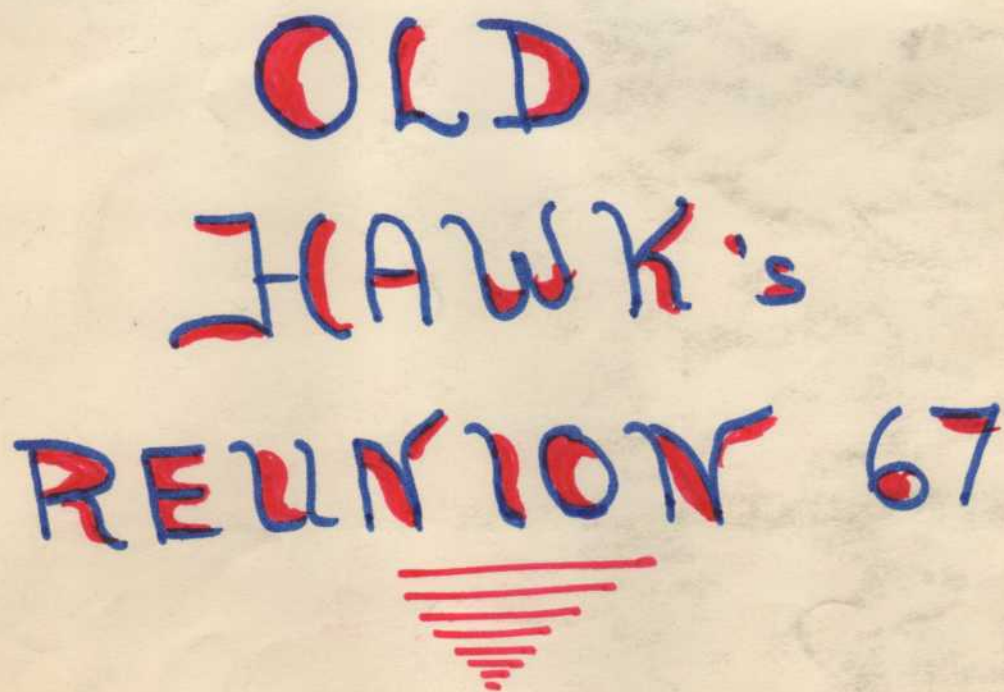 OLD
HAWK's
REUNION 67